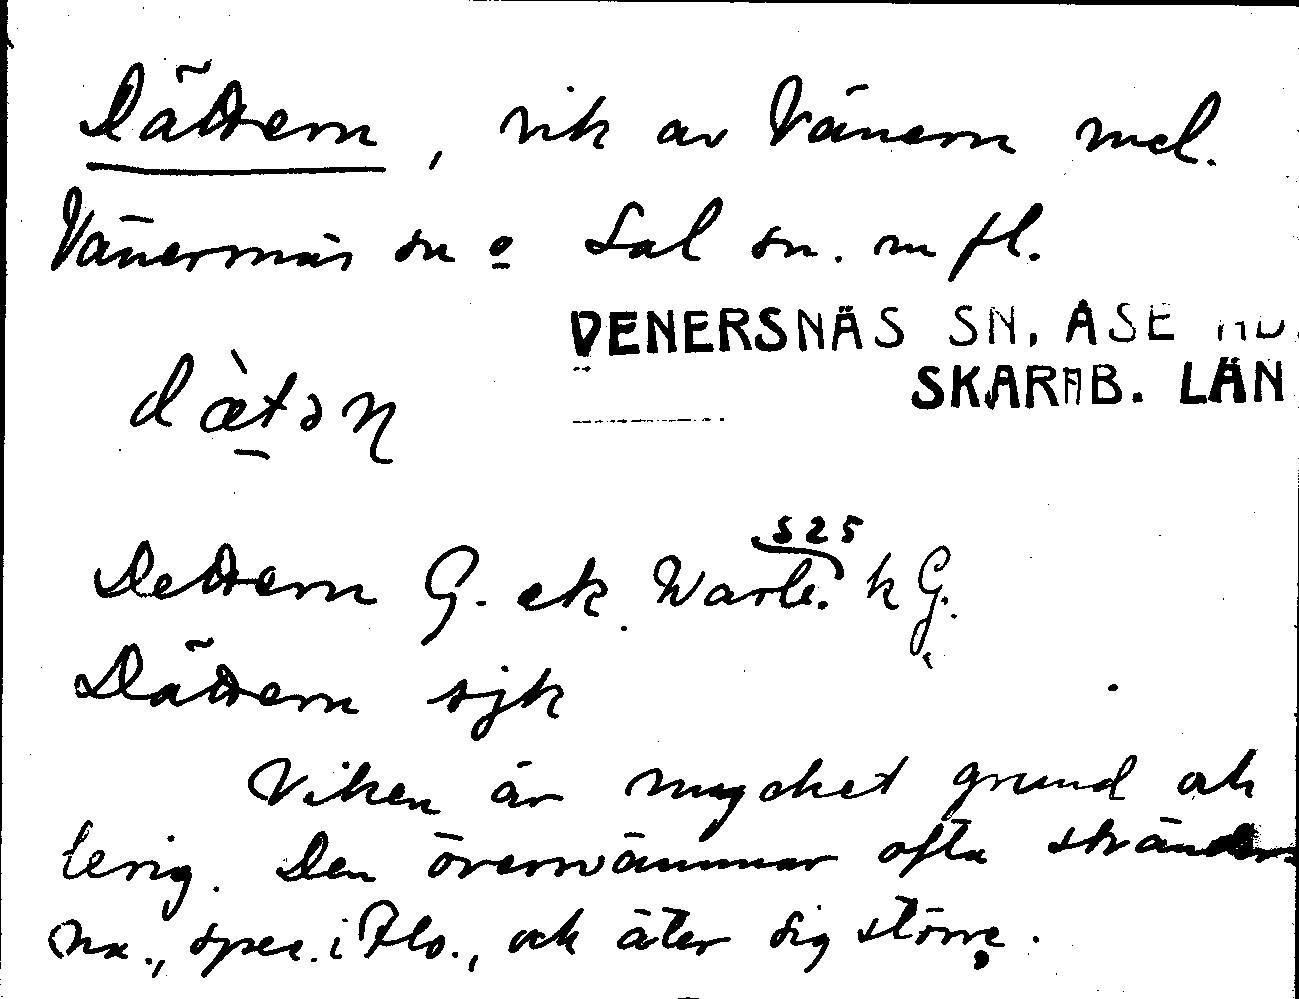 Dättern, vik av Vänern mel.
Vänernäs sn o Sal sn. m fl.
VENERSNÄS SN, ÅSE HD.
SKARAB. LÄN
dæ̀tən
Dettern G. ek. Warb. k G.
S 25
Dättern sjk
Viken är mycket grund och
lerig. Den översvämmar ofta stränder-
na, spec. i Flo., och äter sig större.